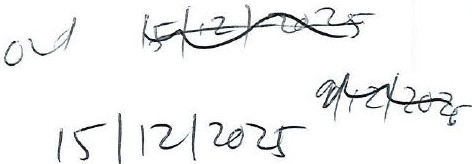 15/12/2025
9/12/2025
15/12/2025